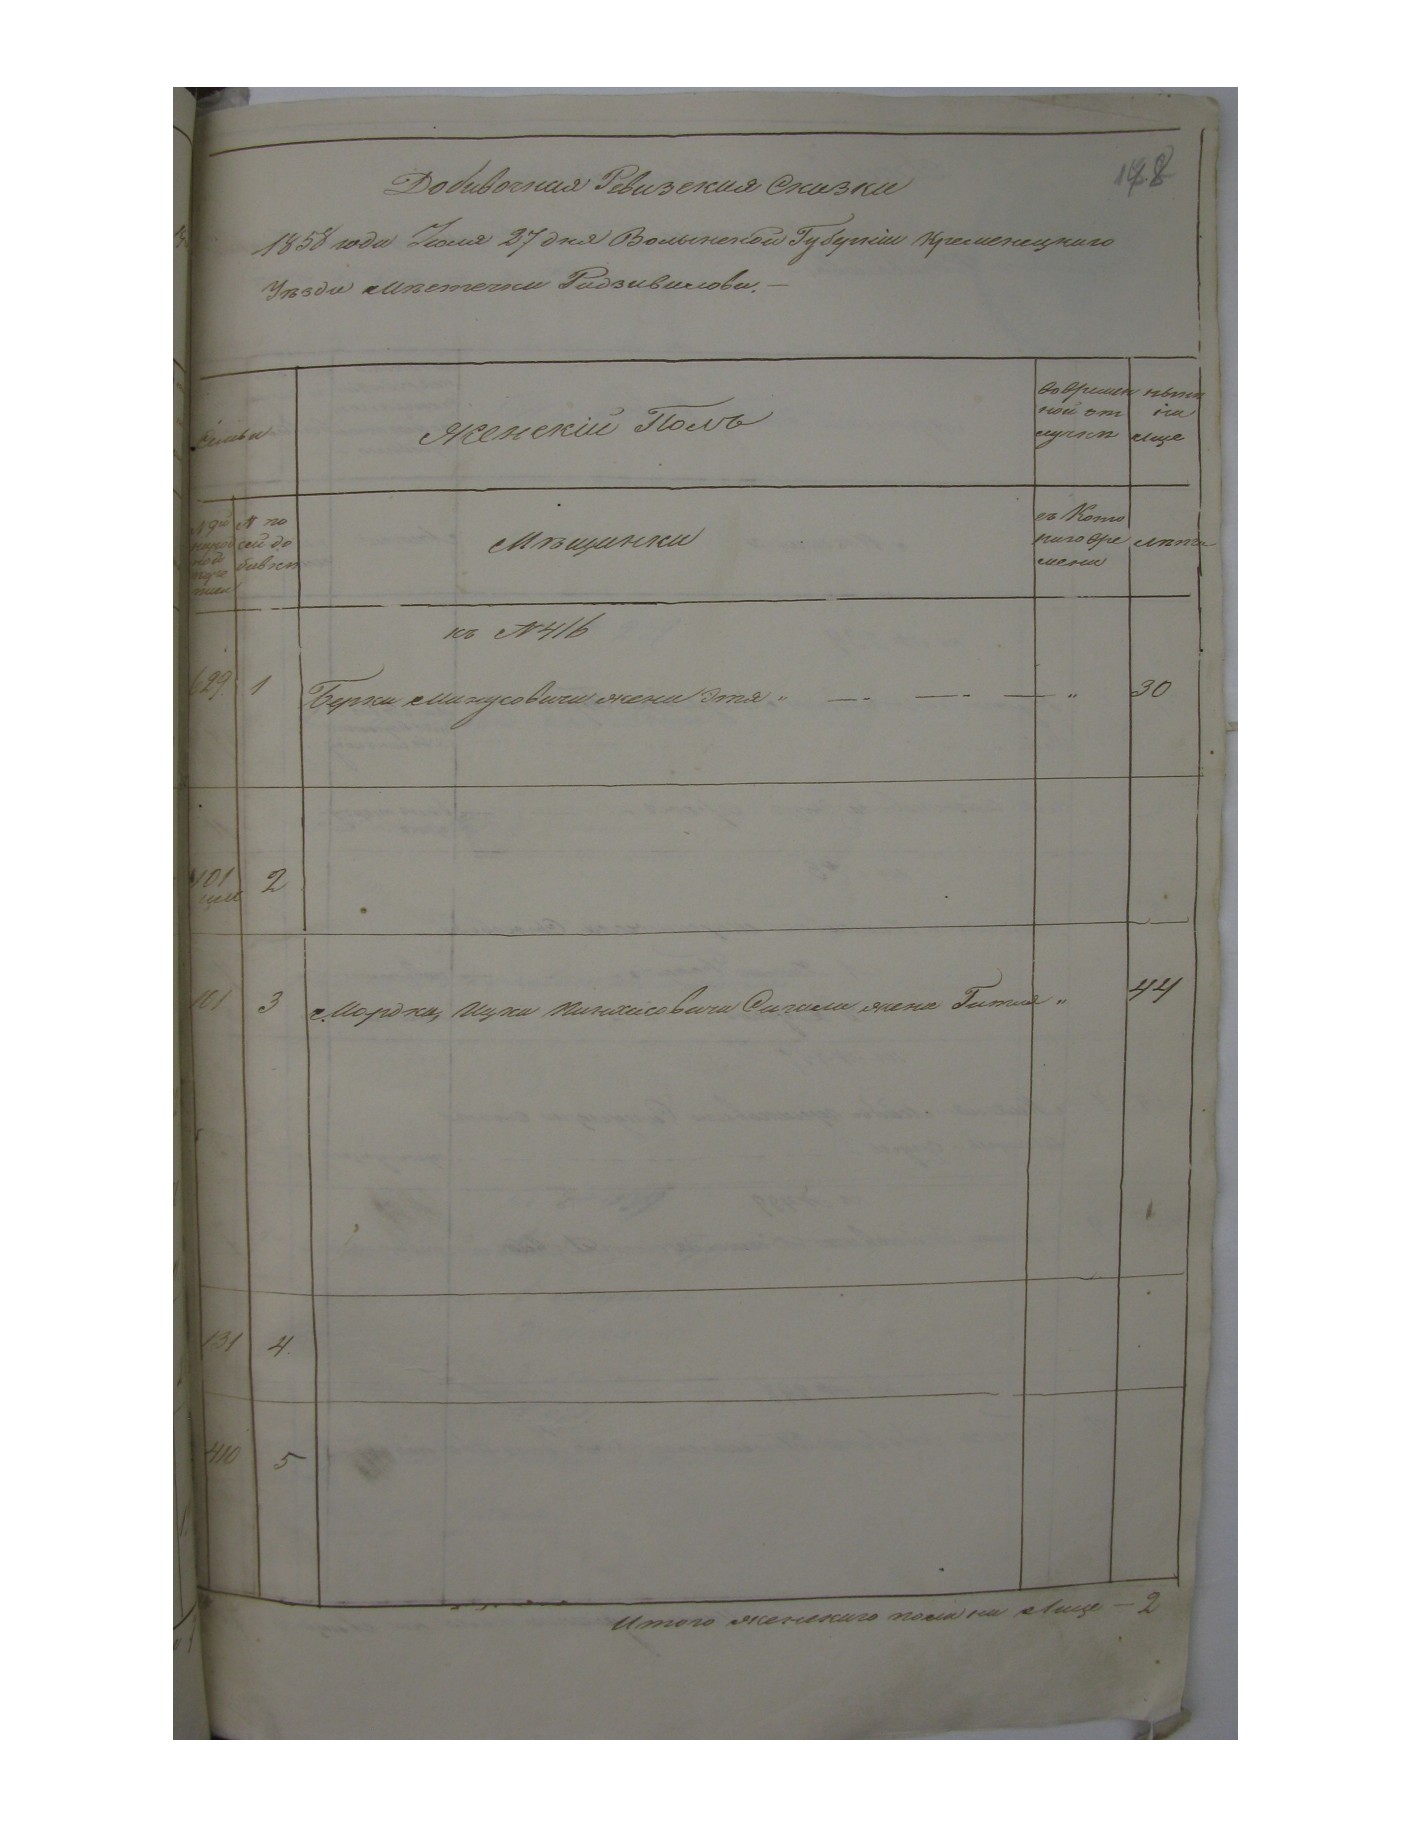 188
Добавочная Ревизская Сказка
1858 года Іюля 27 дня Волынской Губерніи Кременецкаго
Уѣзда Мѣстечка Радзивилова. —
Семьи
Женскій Полъ
Во времен
ной от
лучкѣ
нынѣ
на
лице
№ по
сей до
бавкѣ
Мѣщанки
съ Кото
раго вре
мени
лѣта
къ № 416
629. 1 Берки жена Этя „ —— —— —— „ 30
101 2
101 3 Мордка, Ицка Пинхасовича Сигала жена Гитля „ 44
131 4.
410 5
Итого женскаго пола на Лице — 2